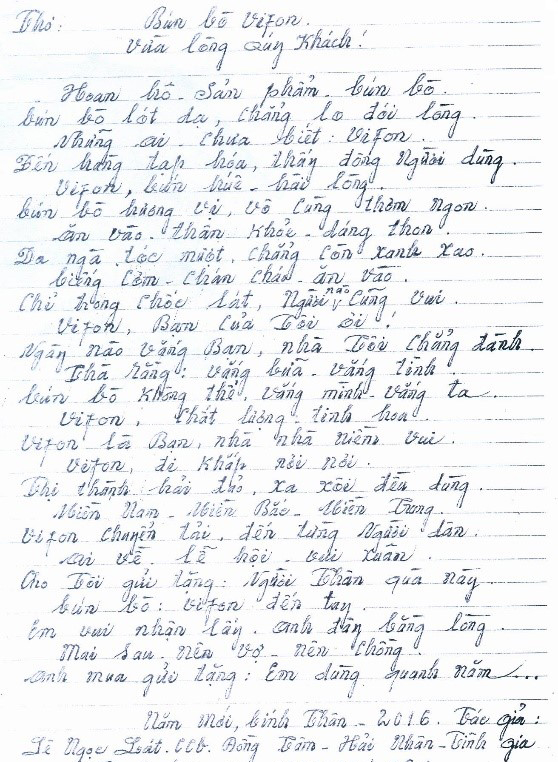 Thơ: Bún bò Vifon.
Vừa lòng Quý Khách!
Hoan hô - Sản phẩm - bún bò.
bún bò lót dạ, chẳng lo đói lòng.
Những ai - chưa biết: Vifon.
Đến hàng tạp hóa, thấy đông Người dùng.
Vifon, bún huế - hài lòng.
bún bò hương vị, vô cùng thơm ngon.
Ăn vào - thân khỏe - dáng thon.
Da ngà tóc mượt, chẳng còn xanh xao.
biếng cơm - chán cháo - ăn vào.
Chỉ trong chốc lát, Người nào cũng vui.
Vifon, Bạn của Tôi ơi!
Ngày nào vắng Bạn, nhà Tôi chẳng đành.
Thà rằng: vắng bữa - vắng tình.
bún bò không thể, vắng mình - vắng ta.
Vifon, chất lượng - tinh hoa.
Vifon là Bạn, nhà nhà niềm vui.
Vifon, đi khắp nơi nơi.
Thị thành hải đảo, xa xôi đều dùng.
Miền Nam - Miền Bắc - Miền Trung.
Vifon chuyển tải, đến từng Người dân.
Ai về lễ hội vui xuân.
Cho Tôi gửi tặng: Người Thân quà này
bún bò: Vifon đến tay.
Em vui nhận lấy - Anh đây bằng lòng.
Mai sau - nên vợ - nên chồng.
Anh mua gửi tặng: Em dùng quanh năm...
Năm mới, bính Thân - 2016. Tác giả:
Lê Ngọc Đồng Tâm - Hải Nhân - Tĩnh gia